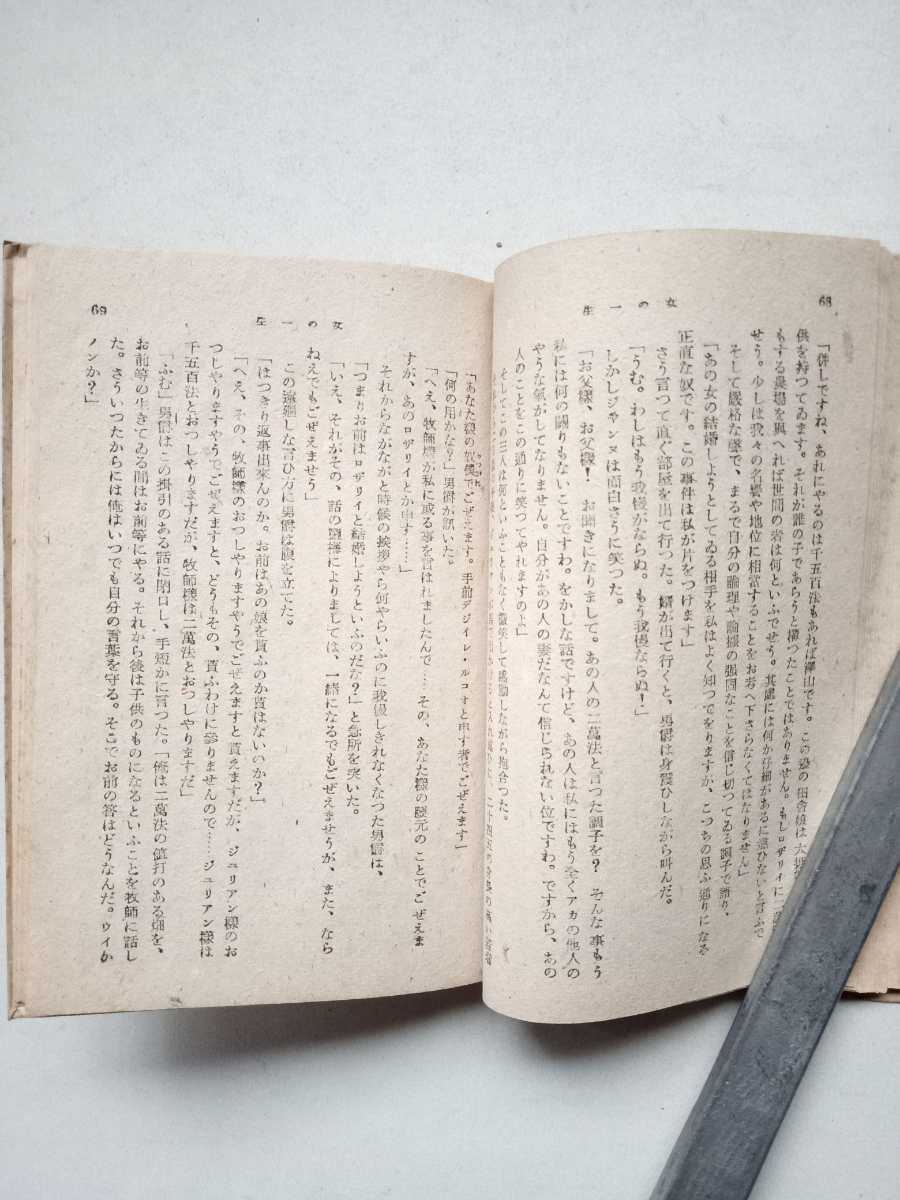 68
女の一生
「併しですね、あれにやるのは千五百法もあれば澤山です。この邊の田舍娘は大抵
供を持つてゐます。それが誰の子であらうと構つたことではありません。もしロザリイに二萬
もする農場を與へれば世間の者は何といふでせう。其處には何か仔細があるに違ひないと言ふで
せう。少しは我々の名譽や地位に相當することをお考へ下さらなくてはなりません」
そして嚴格な聲で、まるで自分の論理や論據の强固なことを信じ切つてゐる調子で語り、
「あの女の結婚しようとしてゐる相手を私はよく知つてをりますが、こつちの思ふ通りになる
正直な奴です。この事件は私が片をつけます」
さう言つて直ぐ部屋を出て行つた。壻が出て行くと、男爵は身震ひしながら叫んだ。
「うむ。わしはもう我慢がならぬ。もう我慢ならぬ！」
しかしジャンヌは面白さうに笑つた。
「お父樣、お父樣！ お聞きになりまして。あの人の二萬法と言つた調子を？ そんな事もう
私には何の關りもないことですわ。をかしな話ですけど、あの人は私にはもう全くアカの他人の
やうな氣がしてなりません。自分があの人の妻だなんて信じられない位ですわ。ですから、あの
人のことをこの通りに笑つてやれますのよ」
そしてこの三人は何といふこともなく微笑して感動しながら抱合つた。
女の一生
69
「あなた樣の奴僕でごぜえます。手前デジイレ・ルコオと申す者でごぜえます」
「何の用かな？」男爵が訊いた。
「へえ、牧師樣が私に或る事を言はれましたんで……その、あなた樣の腰元のことでごぜえま
すが、あのロザリイとか申す……」
それからながながと時候の挨拶やら何やらいふのに我慢しきれなくなつた男爵は、
「つまりお前はロザリイと結婚しようといふのだな？」と急所を突いた。
「いえ、それがその、話の鹽梅によりましては、一緖になるでもごぜえませうが、また、なら
ねえでもごぜえませう」
この遠廻しな言ひ方に男爵は腹を立てた。
「はつきり返事出來んのか。お前はあの娘を貰ふのか貰はないのか？」
「へえ、その、牧師樣のおつしやりますやうでごぜえますと貰えますだが、ジュリアン樣のお
つしやりますやうでごぜえますと、どうもその、貰ふわけに參りませんので……ジュリアン樣は
千五百法とおつしやりますだが、牧師樣は二萬法とおつしやりますだ」
「ふむ」男爵はこの掛引のある話に閉口し、手短かに言つた。「俺は二萬法の値打のある畑を、
お前等の生きてゐる間はお前等にやる。それから後は子供のものになるといふことを牧師に話し
た。さういつたからには俺はいつでも自分の言葉を守る。そこでお前の答はどうなんだ。ウイか
ノンか？」